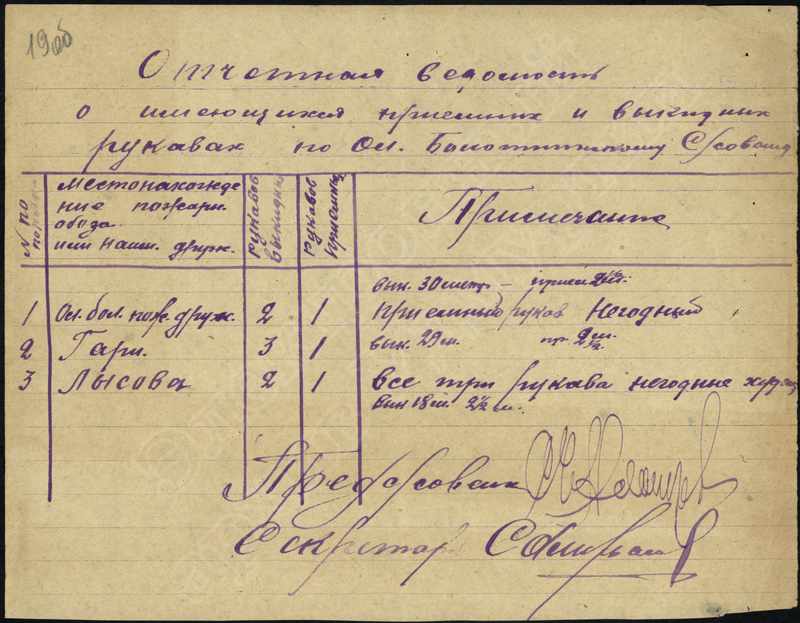 190б
Отчетная ведомость
о имеющихся приемных и выкидных
рукавах по Ол. Болотинскому С/совету
N по порядк.
местонахожде
ние пожарн.
обоза
или наим. друж.
рукавов выкидных
рукавов приемных
Примечание
вык. 30 метр. – прием 2½ м.
1 Ол. бол. пож. друж. 2 1 приемный рукав негодный
2 Гари. 3 1 вык. 29 м. пр. 2½ м.
3 Лысова 2 1 все три рукава негодные
вык 18 м. 2½ м.
Пред с/совета
Секретар